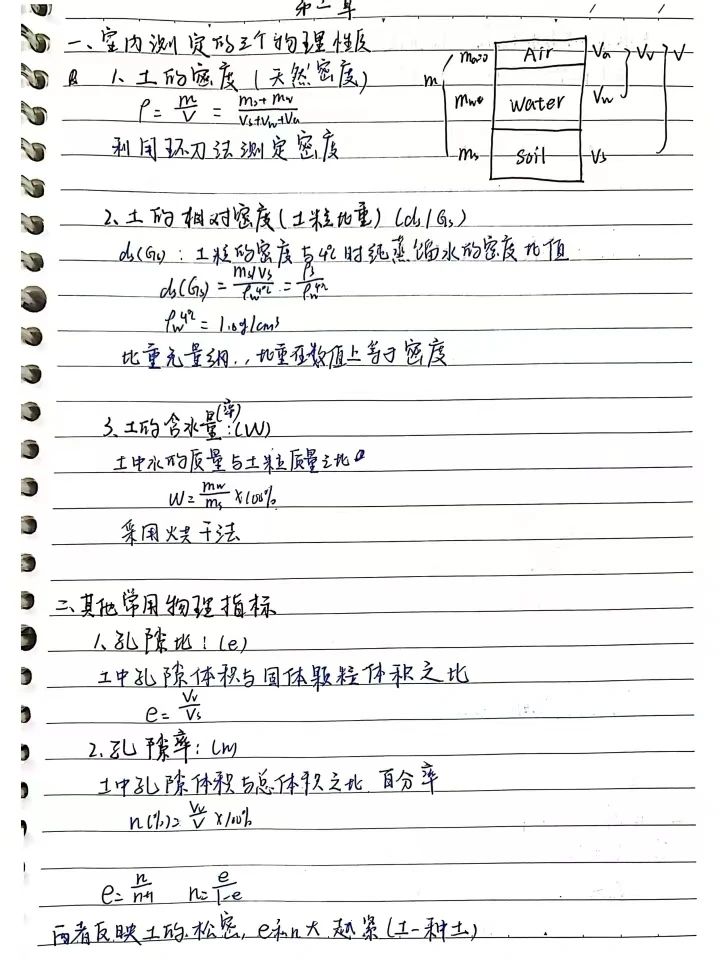 第二章
一、室内测定的三个物理性质
1、土的密度（天然密度）
ρ = m/V = (ms+mw)/(Vs+Vw+Va)
利用环刀法测定密度
m ma≈0 Air Va Vv V
mw water Vw
ms Soil Vs
2、土的相对密度（土粒比重）(ds/Gs)
ds(Gs)：土粒的密度与4℃时纯蒸馏水的密度比值
ds(Gs) = (ms/Vs)/ρw4℃ = ρs/ρw4℃
ρw4℃ = 1.0g/cm³
比重无量纲，比重在数值上等于密度
3、土的含水量(率)：(W)
土中水的质量与土粒质量之比
W = mw/ms ×100%
采用烘干法
二、其他常用物理指标
1、孔隙比：(e)
土中孔隙体积与固体颗粒体积之比
e = Vv/Vs
2、孔隙率：(n)
土中孔隙体积与总体积之比 百分率
n(%) = Vv/V ×100%
n = e/(1-e)
两者反映土的松密，e和n大越紧（土一种土）